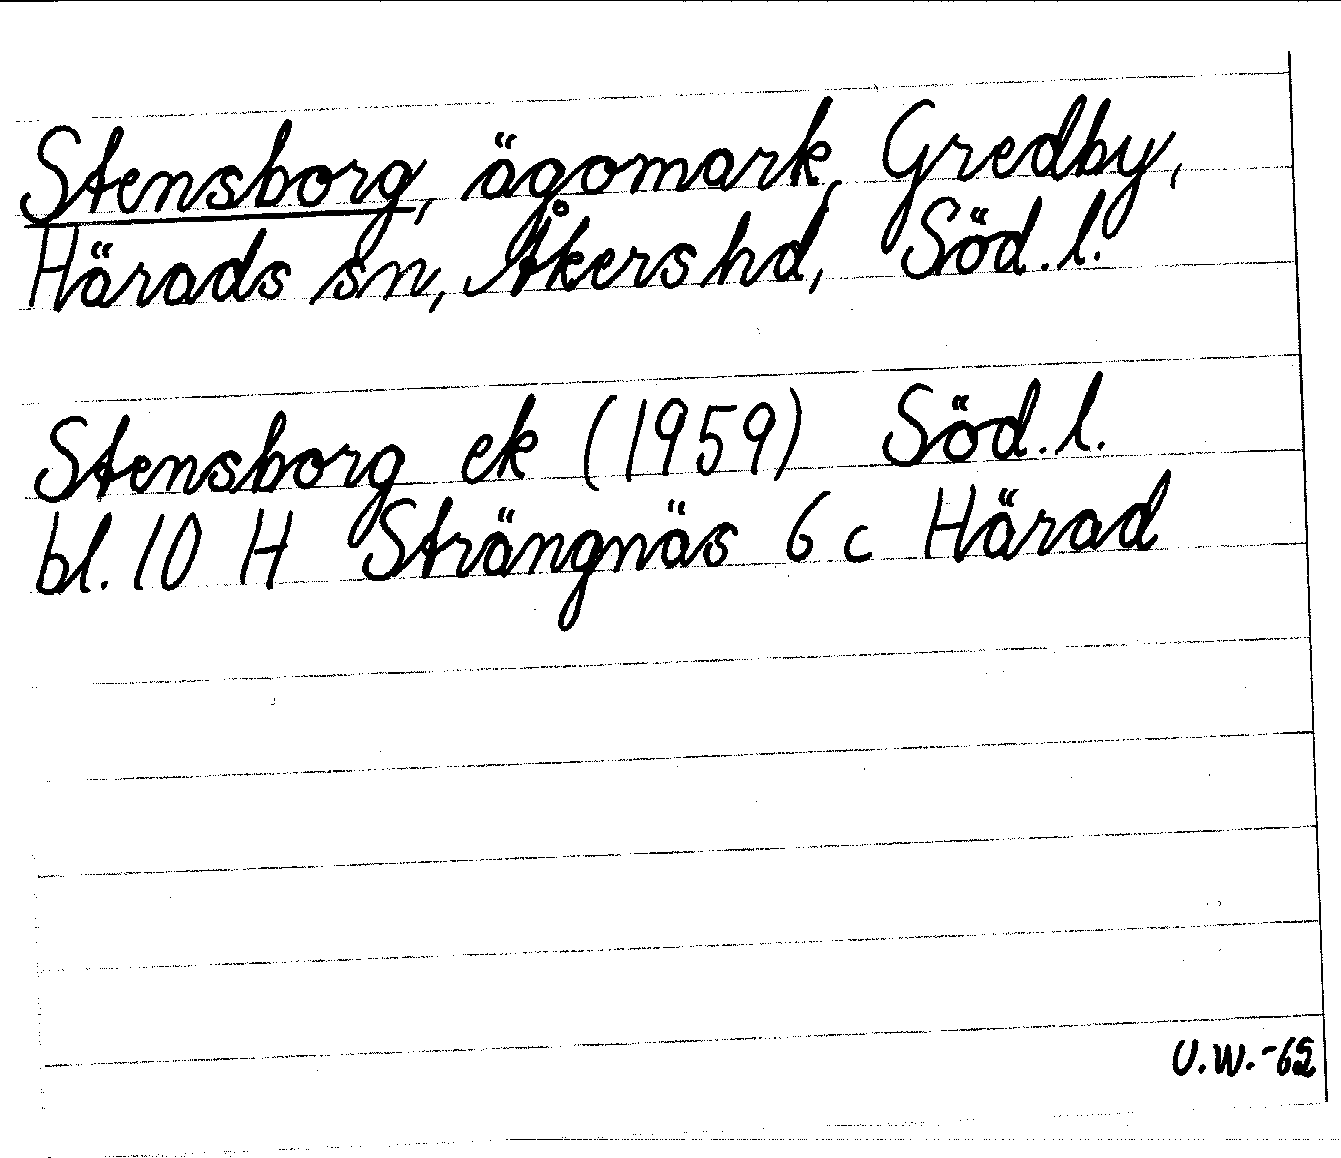 Stensborg, ägomark, Gredby,
Härads sn, Åkers hd, Söd. l.
Stensborg ek (1959) Söd. l.
bl. 10 H Strängnäs 6 c Härad
U.W.-62